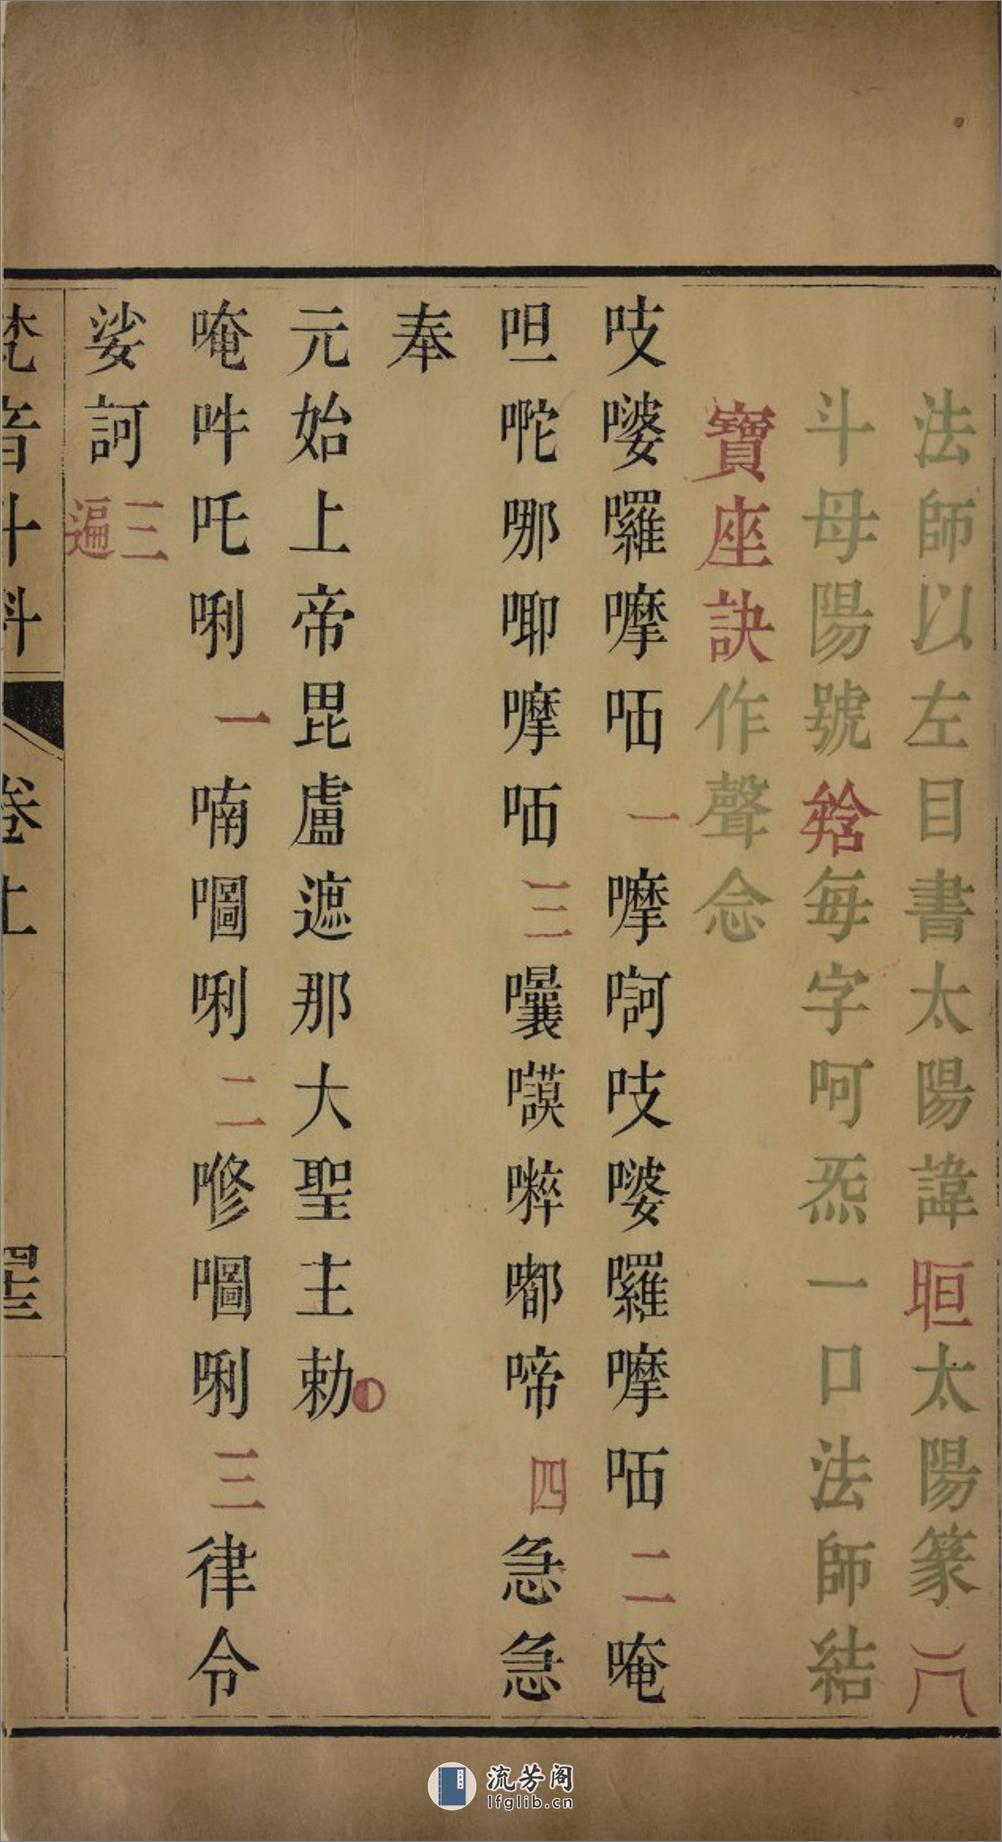 法師以左目書太陽諱䀈太陽篆
斗母陽號每字呵炁一口法師結
寶座訣作聲念
吱嘙囉嚤㕷一嚤啊吱嘙囉嚤㕷二唵
呾哪唧嚤㕷三囔㗫嘟啼四急急
奉
元始上帝毘盧遮那大聖主勅
唵吽吒唎一喃唎二唎三律令
娑訶三遍
梵音斗科
卷上
流芳阁
lfglib.cn